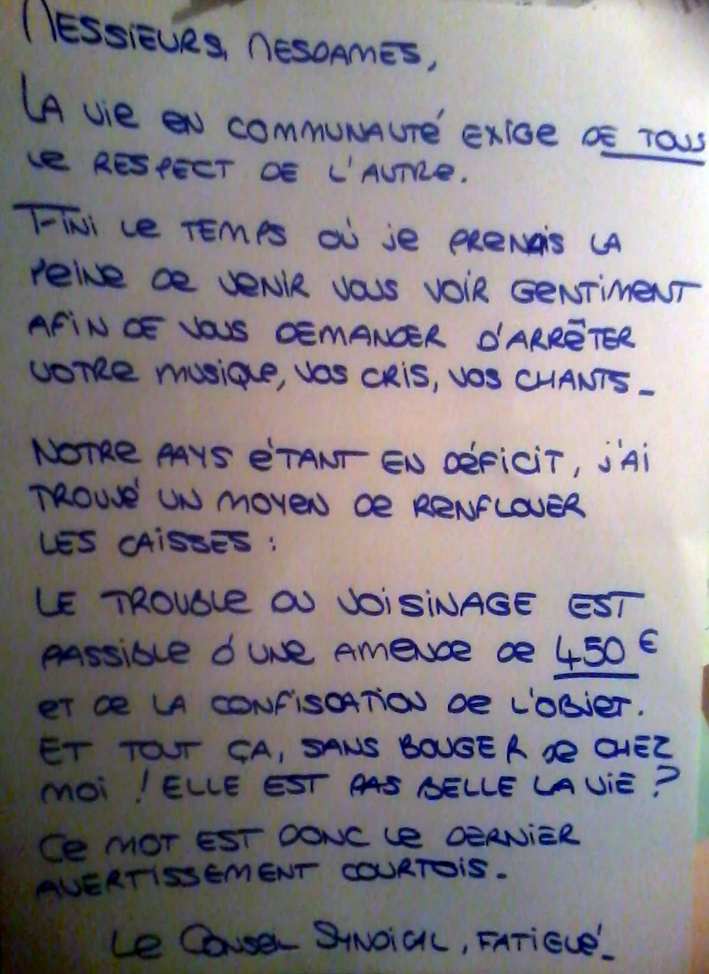 MESSIEURS, MESDAMES,
LA vie EN COMMUNAUTÉ EXIGE DE TOUS
Le RESPECT DE L'AUTRE.
FINI Le TEMPS OÙ je PRENAIS LA
PEINE DE VENIR VOUS VOIR GENTIMENT
AFIN DE VOUS DEMANDER D'ARRÊTER
VOTRE MUSIQUE, VOS CRIS, VOS CHANTS_
NOTRE PAYS ÉTANT EN DÉFICIT, J'AI
TROUVÉ UN MOYEN DE RENFLOUER
LES CAISSES :
LE TROUBLE DU VOISINAGE EST
PASSIBLE D'UNE AMENDE DE 450 €
ET DE LA CONFISCATION DE L'OBJET.
ET TOUT ÇA, SANS BOUGER DE CHEZ
MOI ! ELLE EST PAS BELLE LA VIE ?
CE MOT EST DONC LE DERNIER
AVERTISSEMENT COURTOIS_
Le CONSEIL SYNDICAL, FATIGUÉ_